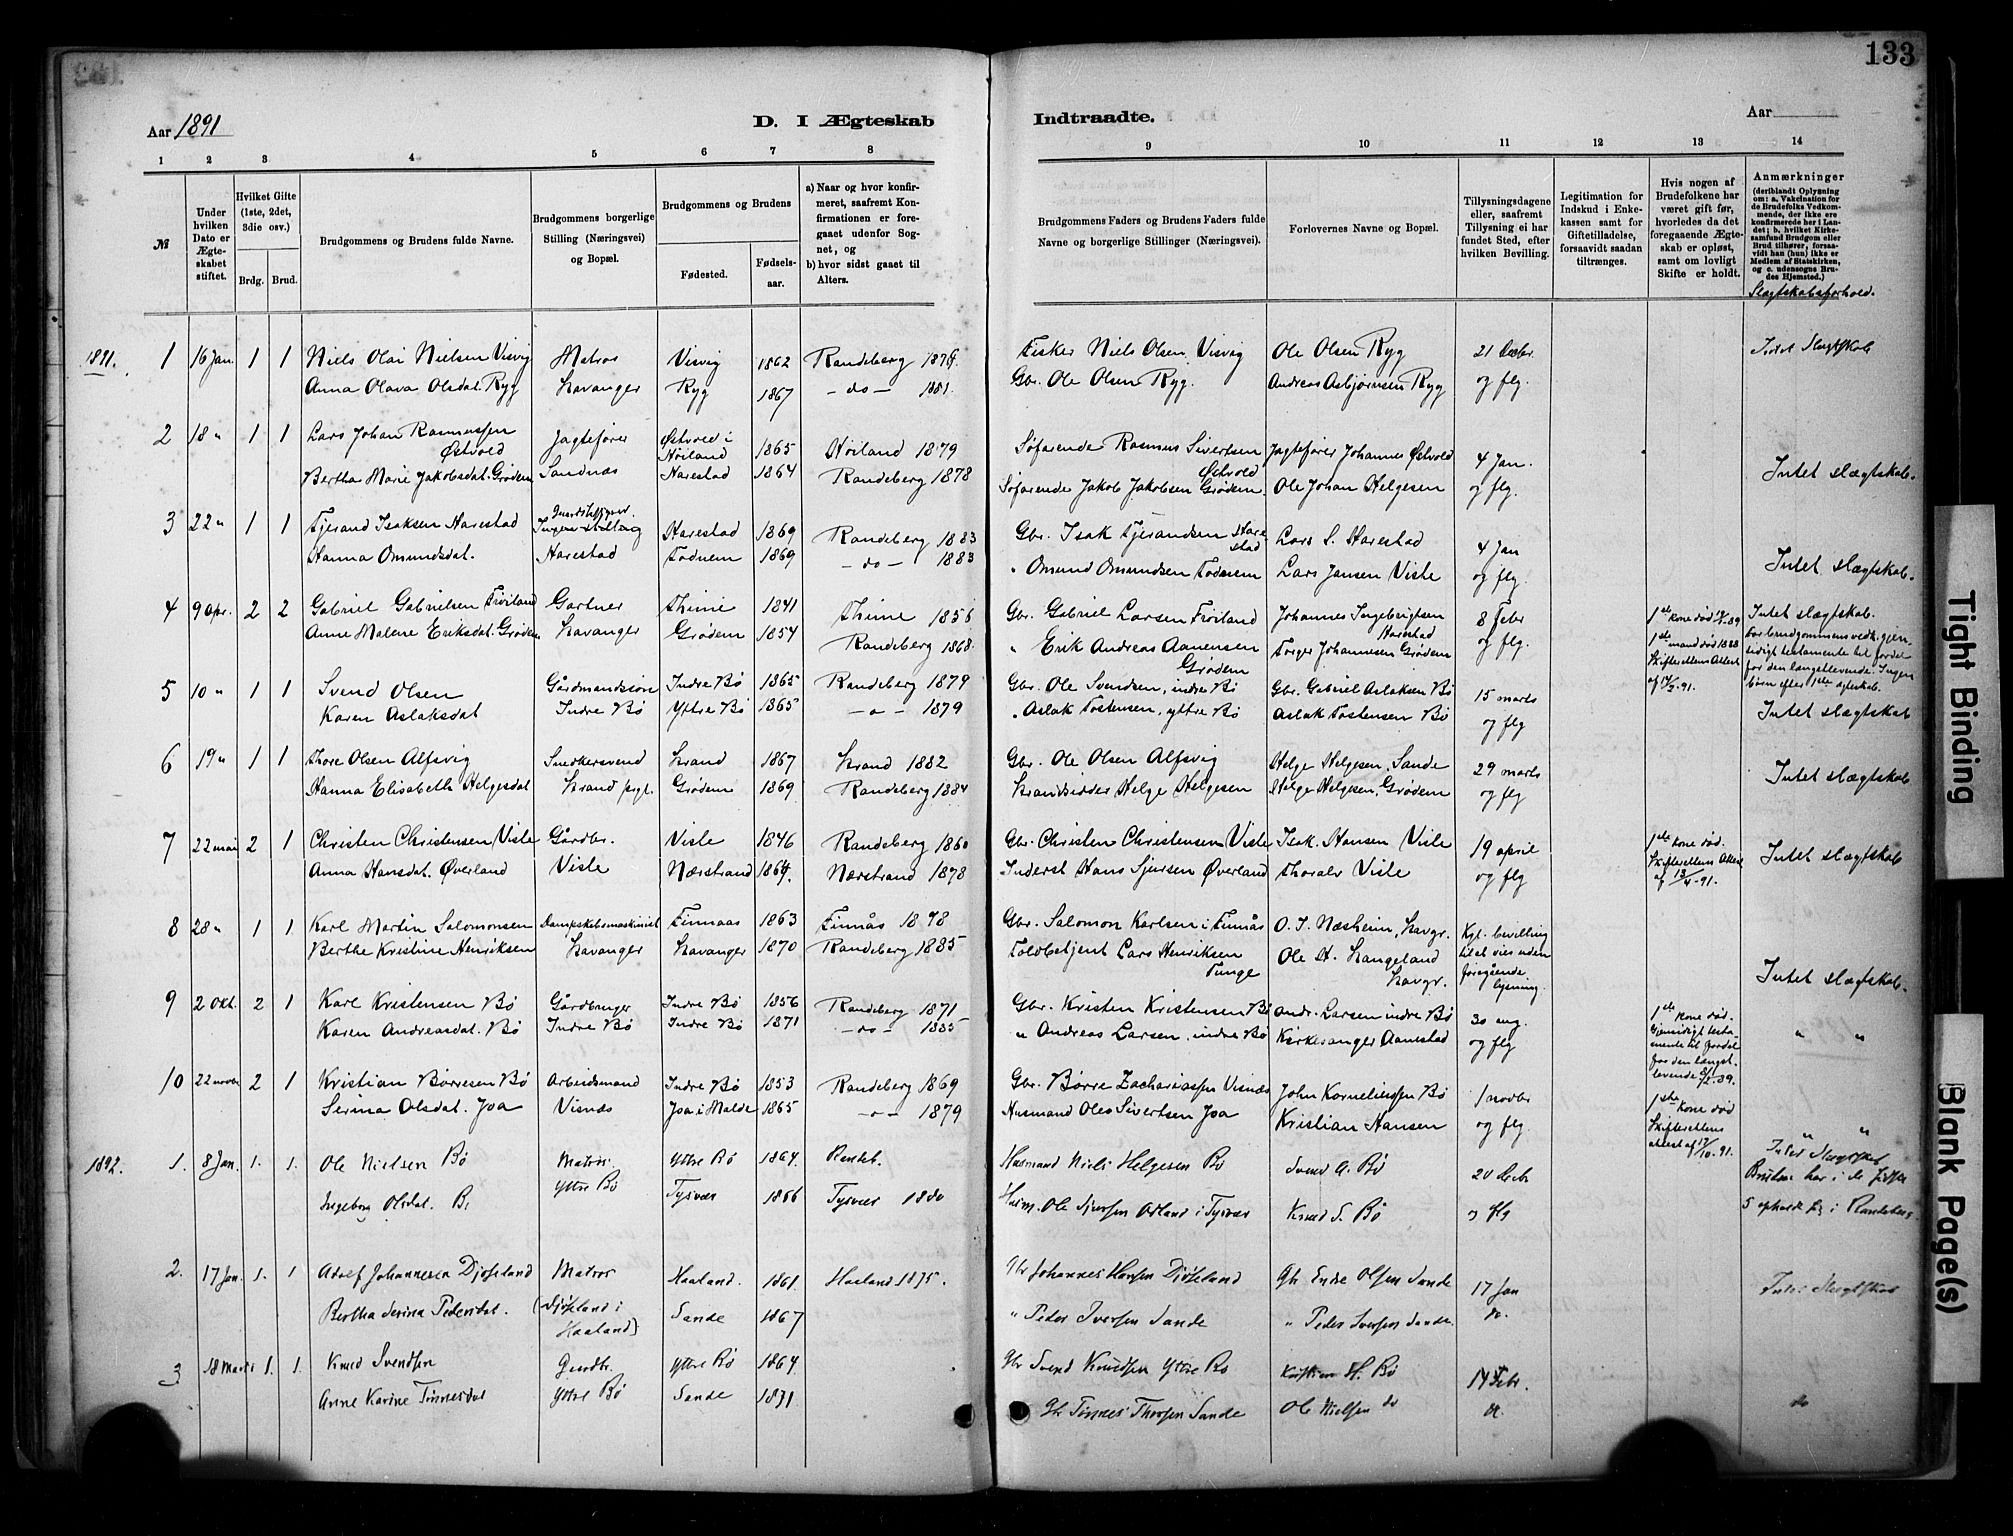 133
Aar 1891
D. I Ægteskab
Indtraadte.
Aar
1 2 3 4 5 6 7 8 9 10 11 12 13 14
№
Under hvilken Dato er Ægteskabet stiftet.
Hvilket Gifte (1ste, 2det, 3die osv.)
Brdg. Brud.
Brudgommens og Brudens fulde Navne.
Brudgommens borgerlige Stilling (Næringsvei) og Bopæl.
Brudgommens og Brudens
Fødested. Fødselsaar.
a) Naar og hvor konfirmeret, saafremt Konfirmationen er foregaaet udenfor Sognet, og
b) hvor sidst gaaet til Alters.
Brudgommens Faders og Brudens Faders fulde Navne og borgerlige Stillinger (Næringsvei).
Forlovernes Navne og Bopæl.
Tillysningsdagene eller, saafremt Tillysning ei har fundet Sted, efter hvilken Bevilling.
Legitimation for Indskud i Enkekassen samt for Giftetilladelse, forsaavidt saadan tiltrænges.
Hvis nogen af Brudefolkene har været gift før, hvorledes da det foregaaende Ægteskab er opløst, samt om lovligt Skifte er holdt.
Anmærkninger
(deriblandt Oplysning om: a. Vakcination for de Brudefolks Vedkommende, der ikke ere konfirmerede her i Landet; b. hvilket Kirkesamfund Brudgom eller Brud tilhører, forsaavidt han (hun) ikke er Medlem af Statskirken, og c. udensogns Brudes Hjemsted.)
Slægtskabsforhold.
1891. 1 16 Jan. 1 1 Niels Olai Nielsen Visvig Matros Visvig 1862 Randeberg 1876. Fisker Niels Olsen Visvig Ole Olsen Ryg 21 Decbr. Intet Slægtskab
Anna Olava Olsdat. Ryg Stavanger Ryg 1867 - do - 1881. Gbr. Ole Olsen Ryg. Andreas Asbjørnsen Ryg og flg.
2 18 " 1 1 Lars Johan Rasmussen Østvold Jagtefører Østvold i Høiland 1865 Høiland 1879 Søfarende Rasmus Sivertsen Østvold Jagtefører Johannes Østvold 4 Jan.
Bertha Marie Jakobsdat. Grødem Sandnæs Harestad 1864 Randeberg 1878 Søfarende Jakob Jakobsen Grødem. Ole Johan Helgesen og flg. Intet slægtskab.
3 22 " 1 1 Tjerand Isaksen Harestad Harestad 1869 Randeberg 1883 Gbr. Isak Tjerandsen Harestad Lars S. Harestad 4 Jan
Hanna Omundsdat. Harestad Todnem 1869 - do - 1883 " Omund Omundsen Todnem Lars Jansen Viste og flg. Intet slægtskab.
4 9 Apr. 2 2 Gabriel Gabrielsen Frøiland Gartner Thime 1841 Thime 1856 Gbr. Gabriel Larsen Frøiland Johannes Ingebrigtsen Harestad 8 Febr 1ste kone død Intet slægtskab.
Anne Malene Eriksdat. Grødem Stavanger Grødem 1854 Randeberg 1868. " Erik Andreas Aanensen Grødem Torger Johannesen Grødem og flg. 1ste mand død 1888 Skifterettens Attest
5 10 " 1 1 Svend Olsen Gårdmandssøn Indre Bø 1865 Randeberg 1879 Gbr. Ole Svendsen, indre Bø Gbr. Gabriel Aslaksen Bø 15 marts
Karen Aslaksdat Indre Bø Yttre Bø 1865 - " - 1879 " Aslak Tostensen, yttre Bø Aslak Tostensen Bø og flg Intet slægtskab
6 19 " 1 1 Thore Olsen Alfsvig Snedkersvend Strand 1867 Strand 1882 Gbr. Ole Olsen Alfsvig Helge Helgesen, Sande 29 marts
Hanna Elisabeth Helgesdat Strand prgt. Grødem 1869 Randeberg 1884 Strandsidder Helge Helgesen Helge Helgesen, Grødem og flg Intet slægtskab
7 22 mai 2 1 Christen Christensen Viste Gårdbr. Viste 1846 Randeberg 1860 Gbr. Christen Christensen Viste Isak Hansen Viste 19 april 1ste kone død.
Anna Hansdat. Øverland Viste Nærstrand 1864. Nærstrand 1878 Inderst Hans Sjursen Øverland Thoralv Viste og flg Skifterettens Attest af 13/4-91. Intet slægtskab
8 28 " 1 1 Karl Martin Salomonsen Dampskibsmaskinist Finnaas 1863 Finnås 1878 Gbr. Salomon Karlsen i Finnås O. J. Næsheim, Stavgr. Kgl. bevilling
Berthe Kristine Henriksen Stavanger Stavanger 1870 Randeberg 1885 Toldbetjent Lars Henriksen Tunge Ole H. Langeland Stavgr. til at vies uden foregående lysning. Intet slægtskab.
9 2 Okt. 2 1 Karl Kristensen Bø Gårdbruger Indre Bø 1856 Randeberg 1871 Gbr. Kristen Kristensen Bø Andr. Larsen indre Bø 30 aug. 1ste kone død.
Karen Andreasdat. Bø Indre Bø Indre Bø 1871 - do - 1885 " Andreas Larsen, indre Bø Kirkesanger Aanestad og flg Gjensidigt testamente til fordel for den længstlevende " "
10 22 novbr 2 1 Kristian Børresen Bø Arbeidsmand Indre Bø 1853 Randeberg 1869 Gbr. Børre Zachariassen Visnæs John Korneliussen Bø 1 novbr 1ste kone død
Serina Olsdat. Joa Visnæs Joa i Malde 1865 - " - 1879 Husmand Ole Sivertsen Joa Kristian Hansen og flg Skifterettens attest af 17/10-91. " "
1892. 1. 8 Jan. 1. 1. Ole Nielsen Bø Matros. Yttre Bø 1864. Husmand Niels Helgesen Bø Svend A. Bø 20 Decbr Intet Slægtskab
Ingeborg Olsdat. Yttre Bø Tysvær 1866 Tysvær 1880 Husm. Ole Sjursen i Tysvær Knud S. Bø og flg
2. 17 Jan. 1. 1 Johannesen Djøseland Matros Haaland. 1861. Haaland 1875. Gbr Johannes Hansen Djøseland Gbr Endre Olsen Sande 17 Jan Intet Slægtskab
Bertha Serina Pedersdat. (Djøseland i Haaland) Sande 1867 " Peder Iversen Sande " Peder Iversen Sande. do.
3 18 Marts 1. 1. Knud Svendsen Gaardbr. Yttre Bø 1864 Gbr Svend Knudsen Yttre Bø H. Bø 14 Febr.
Anne Karine Tønnesdat Yttre Bø Sande 1871 Gbr Tønnes Thorsen Sande Ole Nielsen do do
Tight Binding
Blank Page(s)